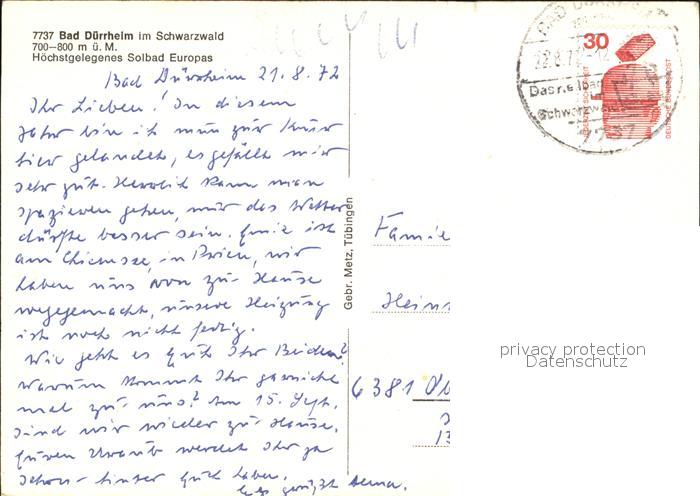 7737 Bad Dürrheim im Schwarzwald
700–800 m ü. M.
Höchstgelegenes Solbad Europas
Bad Dürrheim 21.8.72
Ihr Lieben! In diesem
Jahr bin ich nun zur Kur
hier gelandet, es gefällt mir
sehr gut. Herrlich kann man
spazieren gehen, nur das Wetter
dürfte besser sein. ist
am Chiemsee, in Prien, wir
haben uns von zu Hause
weggemacht, unsere Heizung
ist noch nicht fertig.
Wie geht es Euch Ihr Beiden?
Warum kommt Ihr garnicht
mal zu uns? Am 15. Sept.
sind wir wieder zu Hause.
Euren Urlaub werdet Ihr ja
schon hinter Euch haben.
gegrüßt
Gebr. Metz, Tübingen
Familie
Hein
6381
BAD DÜRRHEIM
22.8.72
Schwarzwald
7737
30
DEUTSCHE BUNDESPOST
privacy protection
Datenschutz